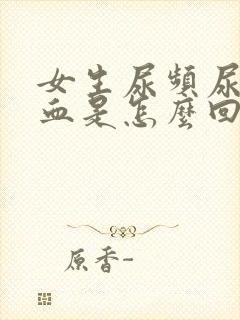 女生尿頻尿
血是怎麼回
原香-